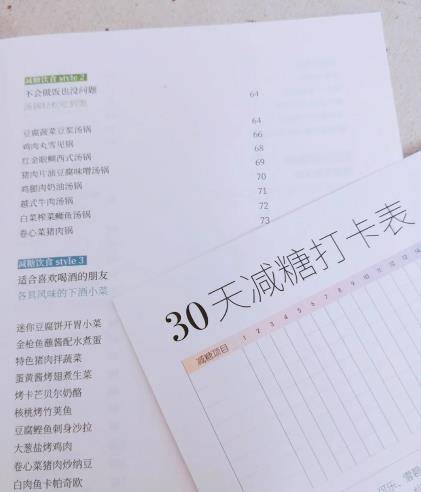 减糖饮食 style 2
不会做饭也没问题
汤锅轻松吃到饱 64
豆腐蔬菜豆浆汤锅 64
鸡肉丸雪见锅 66
红金眼鲷西式汤锅 68
猪肉片油豆腐味噌汤锅 69
鸡腿肉奶油汤锅 70
越式牛肉汤锅 71
白菜榨菜鲷鱼汤锅 72
卷心菜猪肉锅 73
减糖饮食 style 3
适合喜欢喝酒的朋友
各具风味的下酒小菜
迷你豆腐饼开胃小菜
金枪鱼蘸酱配水煮蛋
特色猪肉拌蔬菜
蛋黄酱烤翅煮生菜
烤卡芒贝尔奶酪
核桃烤竹荚鱼
豆腐鲣鱼刺身沙拉
大葱盐烤鸡肉
卷心菜猪肉炒纳豆
白肉鱼卡帕奇欧
30天减糖打卡表
减糖项目 1 2 3 4 5 6 7 8 9 10 11 12 13